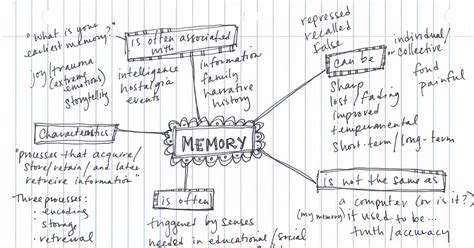 "What is your
earliest memory?"
joy/trauma
(extreme
emotions)
storytelling
is often associated
with
intelligence
nostalgia
events
information
family
narrative
history
repressed
recalled
false
individual/
collective
can be
fond
painful
sharp
lost/fading
improved
temperamental
short-term/long-term
Characteristics
"processes that acquire/
store/retain/and later
retreive information"
Three processes:
- encoding
storage
- retrieval
MEMORY
is often
triggered by senses
needed in educational/social
is not the same as
a computer (or is it?)
(my memory) it used to be...
truth/accuracy